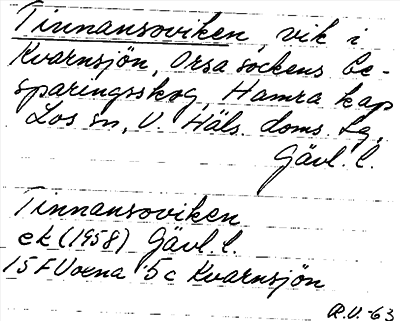 Tinnansoviken, vik i
Kvarnsjön, Orsa sockens be-
sparingsskog, Hamra kap
Los sn, V. Häls. doms. lg,
Gävl. l.
Tinnansoviken
ek (1958) Gävl. l.
15 F Voxna 5c Kvarnsjön
R.V.-63